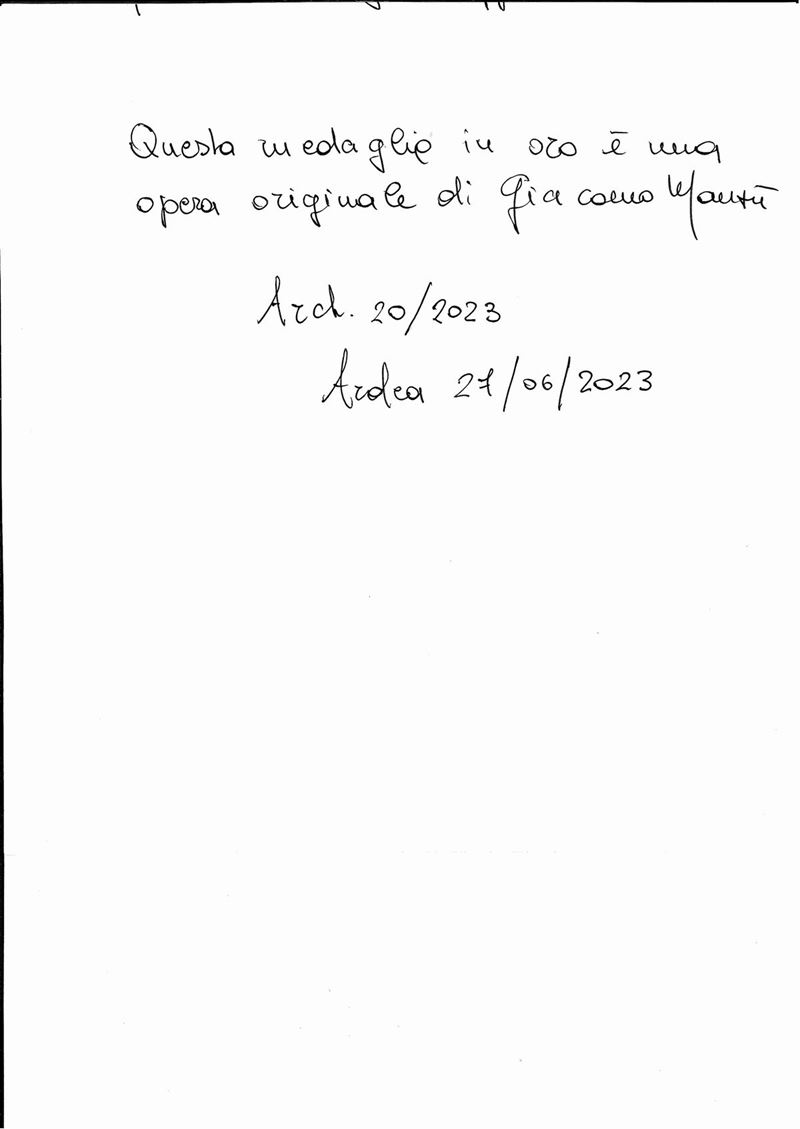 Questa medaglia in oro è una
opera originale di Giacomo Manzù
Arch. 20/2023
Ardea 27/06/2023